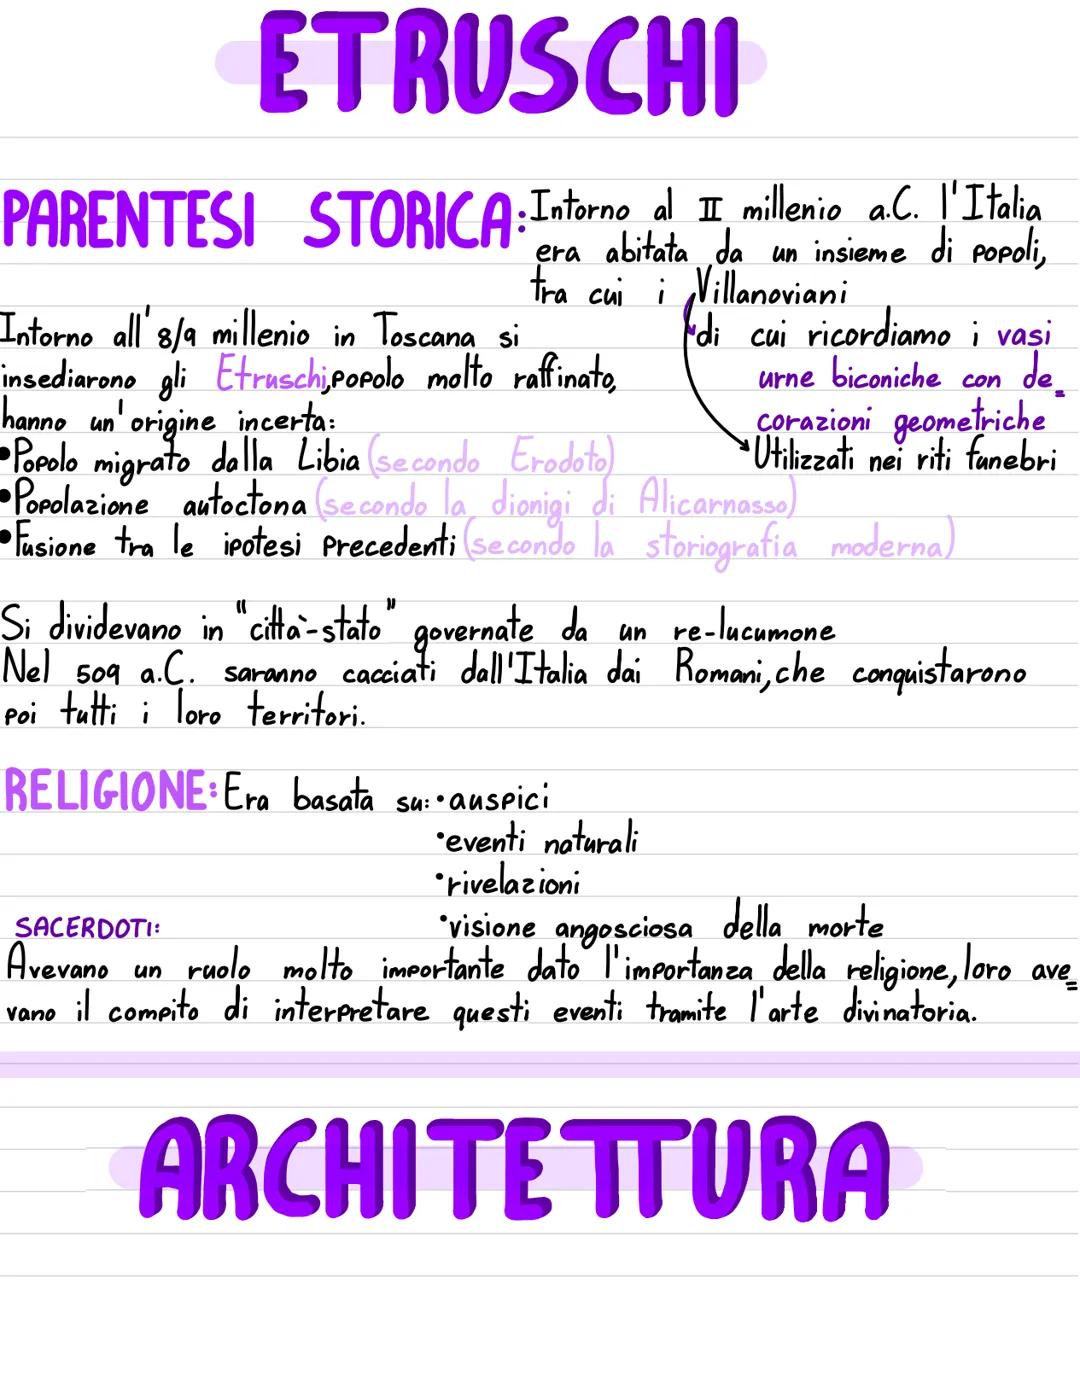 ETRUSCHI
PARENTESI STORICA: Intorno al II millenio a.C. l'Italia
era abitata da un insieme di popoli,
tra cui i Villanoviani
di cui ricordiamo i vasi
urne biconiche con de=
corazioni geometriche
Utilizzati nei riti funebri
Intorno all'8/9 millenio in Toscana si
insediarono gli Etruschi, popolo molto raffinato,
hanno un'origine incerta:
•Popolo migrato dalla Libia (secondo Erodoto)
•Popolazione autoctona (secondo la dionigi di Alicarnasso)
•Fusione tra le ipotesi precedenti (secondo la storiografia moderna)
Si dividevano in "città-stato" governate da un re-lucumone
Nel 509 a.C. saranno cacciati dall'Italia dai Romani, che conquistarono
poi tutti i loro territori.
RELIGIONE: Era basata su: •auspici
•eventi naturali
•rivelazioni
•visione angosciosa della morte
SACERDOTI:
Avevano un ruolo molto importante dato l'importanza della religione, loro ave=
vano il compito di interpretare questi eventi tramite l'arte divinatoria.
ARCHITETTURA